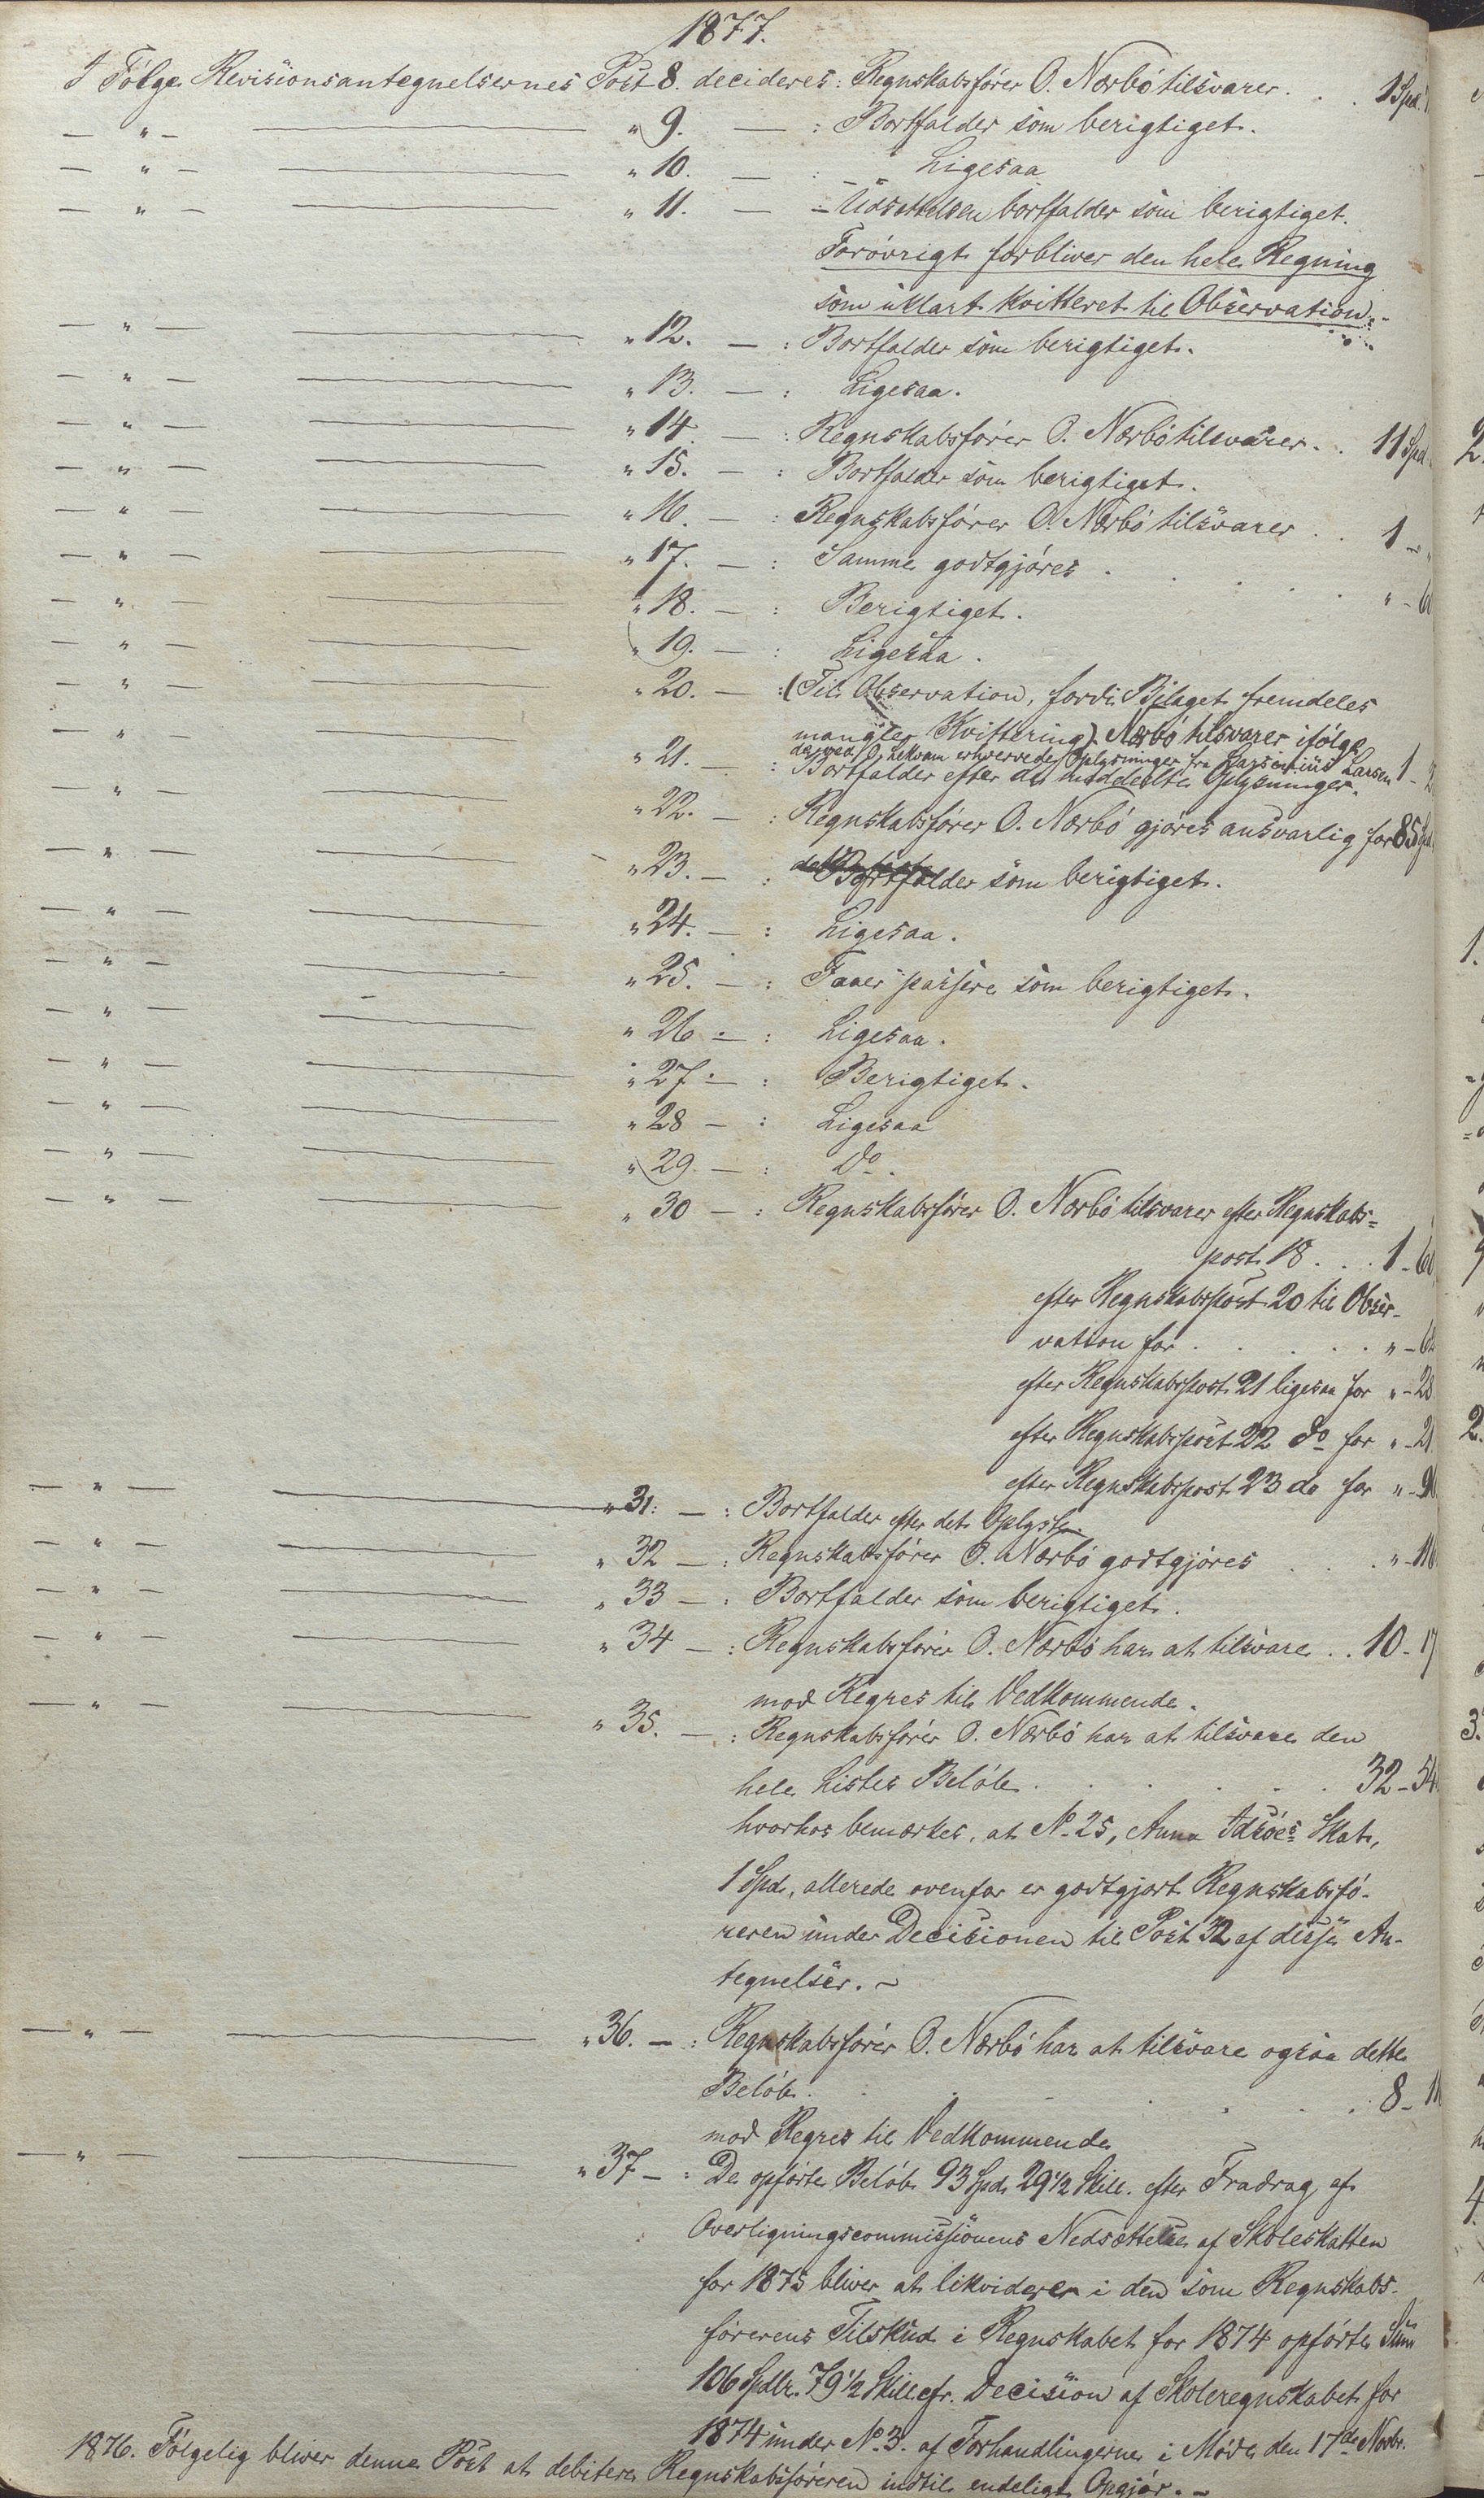 1877.
I Følge Revisionsantegnelsernes Post 8. decideres: Regnskabsfører O. Nærbø tilsvarer . . . 1 Spd.
— " — ——— " 9. — : Bortfalder som berigtiget.
— " — ——— " 10. — : Ligesaa
— " — ——— " 11. — : Udsættelsen bortfalder som berigtiget.
Forøvrigt forbliver den hele Regning
som uklart kvitteret til Observation.-
— " — ——— " 12. — : Bortfalder som berigtiget.
— " — ——— " 13. — : Ligesaa.
— " — ——— " 14. — : Regnskabsfører O. Nærbø tilsvarer . . 11 Spd.
— " — ——— " 15. — : Bortfalder som berigtiget.
— " — ——— " 16. — : Regnskabsfører O. Nærbø tilsvarer . . 1 - "
— " — ——— " 17. — : Samme godtgjøres . . . . " - 6
— " — ——— " 18. — : Berigtiget.
— " — ——— " 19. — : Ligesaa.
— " — ——— " 20. — : (Til Observation, fordi Bilaget fremdeles
mangler Kvittering). Nærbø tilsvarer ifølge
de ved O. erhvervede Oplysninger fra Larsen 1 - 2
— " — ——— " 21. — : Bortfalder efter de meddeelte Oplysninger.
— " — ——— " 22. — : Regnskabsfører O. Nærbø gjøres ansvarlig for 85 Spd.
— " — ——— " 23. — : Bortfalder som berigtiget.
— " — ——— " 24. — : Ligesaa.
— " — ——— " 25. — : Faaer passere som berigtiget.
— " — ——— " 26 — : Ligesaa.
— " — ——— " 27 — : Berigtiget.
— " — ——— " 28 — : Ligesaa
— " — ——— " 29 — : Do.
— " — ——— " 30 — : Regnskabsfører O. Nærbø tilsvarer efter Regnskabs=
post 18 . . . 1 - 60
efter Regnskabspost 20 til Obser-
vation for . . . . . " - 6
efter Regnskabspost 21 ligesaa for " - 28
efter Regnskabspost 22 do for " - 21
efter Regnskabspost 23 do for " - 9
— " — ——— " 31: — : Bortfalder efter det Oplyste
— " — ——— " 32 — : Regnskabsfører O. Nærbø godtgjøres . . . " - 110
— " — ——— " 33 — : Bortfalder som berigtiget.
— " — ——— " 34 — : Regnskabsfører O. Nærbø har at tilsvare . . 10 - 17
mod Regres til Vedkommende.
— " — ——— " 35. — : Regnskabsfører O. Nærbø har at tilsvare den
hele Listes Beløb . . . . . 32 - 54
hvorhos bemærkes, at No 25, Anna Idsøes Skat,
1 Spd., allerede ovenfor er godtgjort Regnskabsfø-
reren under Decisionen til Post 32 af disse An-
tegnelser. -
— " — ——— " 36. — : Regnskabsfører O. Nærbø har at tilsvare ogsaa dette
Beløb . . . . . . 8 - 11
mod Regres til Vedkommende
— " — ——— " 37 — : De opførte Beløb 93 Spd 29 1/2 Skill. efter Fradrag af
Overligningscommissionens Nedsættelse af Skoleskatten
for 1875 bliver at likviderer i den som Regnskabs-
førerens Tilskud i Regnskabet for 1874 opførte Sum
106 Spdlr. 79 1/2 Skill. cfr. Decision af Skoleregnskabet for
1874 under No 3. af Forhandlingerne i Møde den 17de Novbr.
1876. Følgelig bliver denne Post at debitere Regnskabsføreren indtil endeligt Opgjør. -